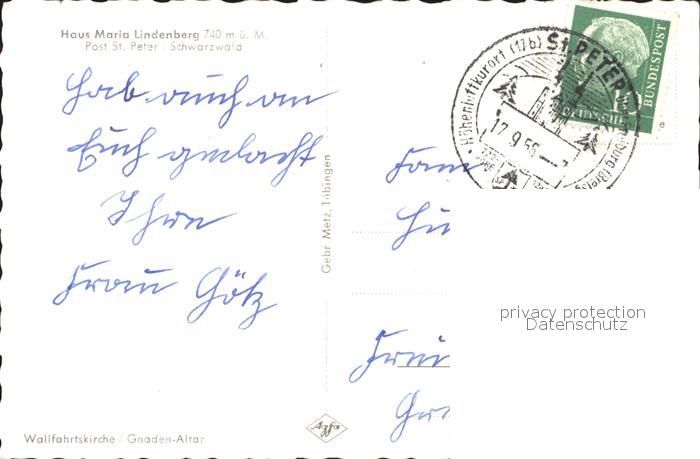 Haus Maria Lindenberg 740 m ü. M.
Post St. Peter / Schwarzwald
Hab auch an
Euch gedacht
Ihre
Frau Götz
Wallfahrtskirche / Gnaden-Altar
Gebr. Metz, Tübingen
Agfa
Höhenluftkurort (17b) St. PETER
17.9.56
10
DEUTSCHE
BUNDESPOST
Fam
privacy protection
Datenschutz